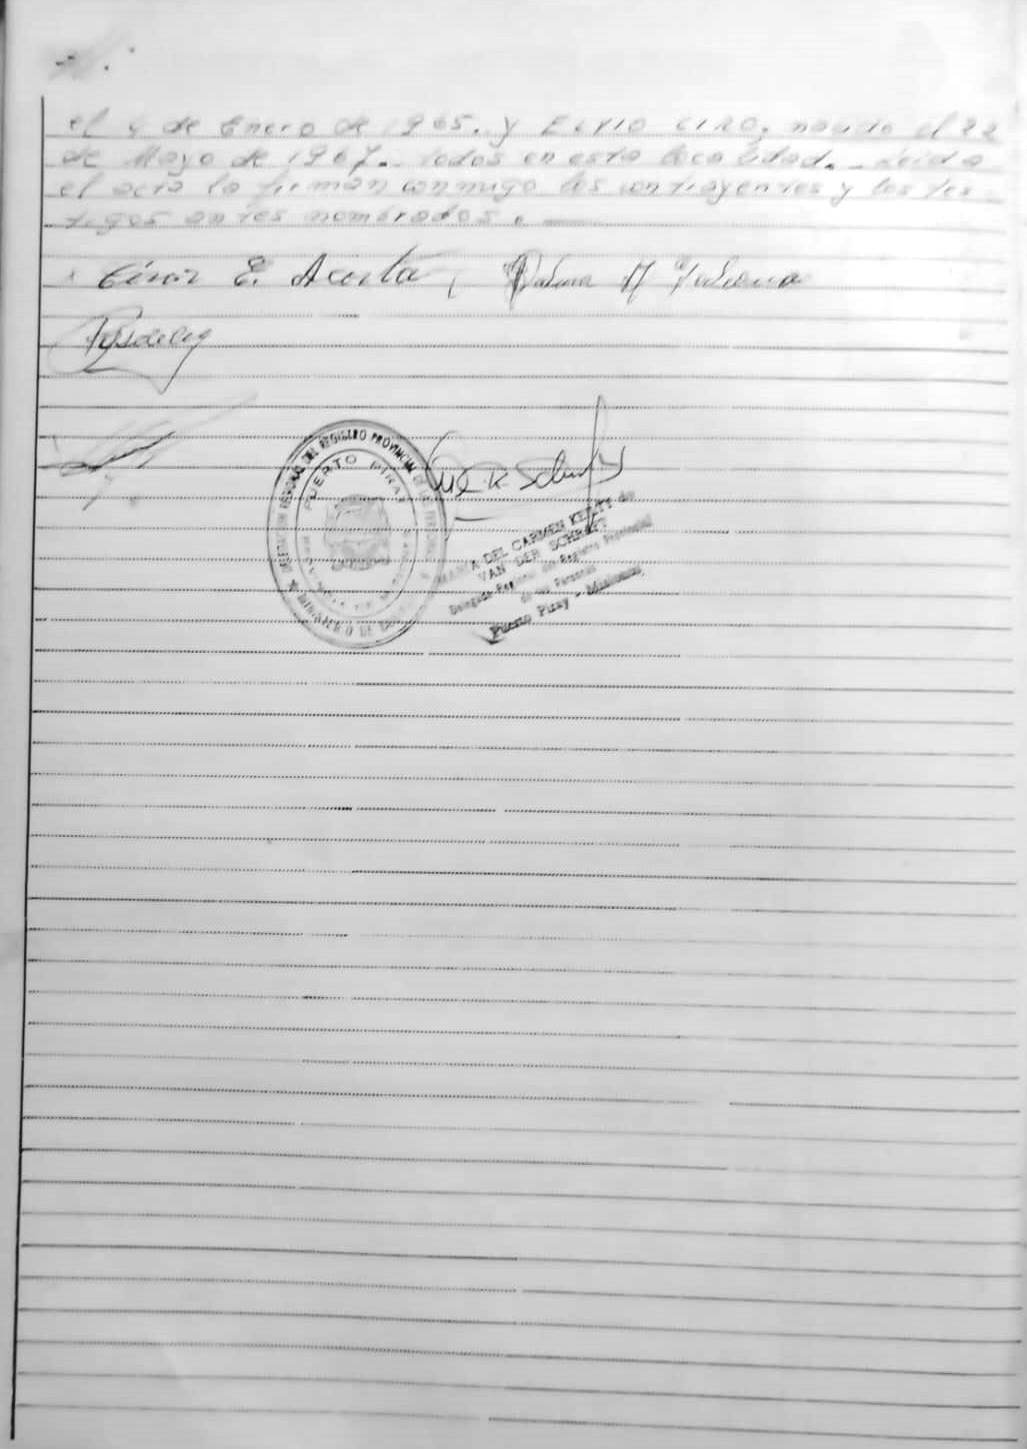 el 4 de Enero de 1965. y ELVIO CIRO, nacido el 22
de Mayo de 1967.- todos en esta localidad.- Leida
el acta la firman conmigo los contrayentes y los tes-
tigos antes nombrados. -
César E. Acosta,
DELEGACION REGIONAL DEL REGISTRO PROVINCIAL DE LAS PERSONAS
PUERTO PIRAY
MINISTERIO DE
DEL CARMEN de
VAN DER SCHRAFT
Delegada Regional del Registro Provincial
de las Personas
Puerto Piray - Misiones